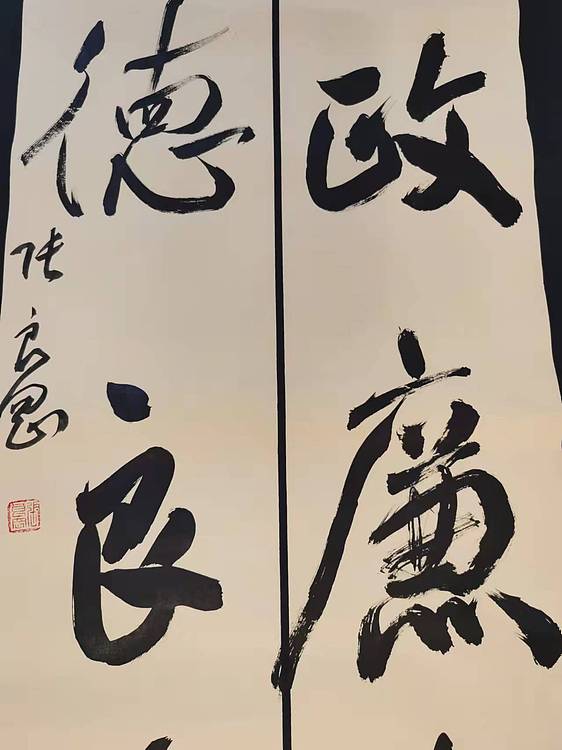 政廉
德良
张良